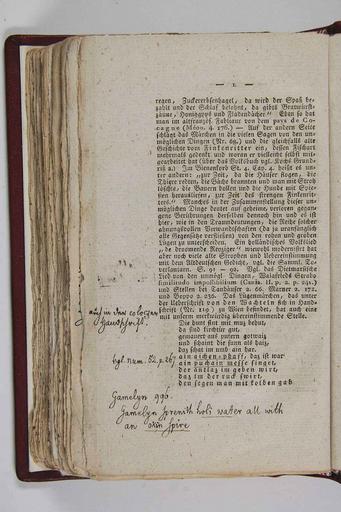 — L —
regen, Zuckererbsenhagel, da wird der Spaß be-
zahlt und der Schlaf belohnt, da gibts Bratwürst-
zäune, Honiggyps und Fladendächer." Eben so hat
man im altfranzös. Fabliaux von dem pays de Co-
cagne (Méon. 4. 176.) — Auf der andern Seite
schlägt das Märchen in die vielen Sagen von den un-
möglichen Dingen (Nr. 69.) und die gleichfalls alte
Geschichte vom Finkenritter ein, dessen Fischart
mehrmals gedenkt und woran er vielleicht selbst mit-
gearbeitet hat (über das Volksbuch vgl. Kochs Grund-
riß 2.) Im Bienenkorb St. 4. Cap. 4. heißt es un-
ter andern: „zur Zeit, da die Häuser flogen, die
Thiere redten, die Bäche brannten und man mit Stroh
löschte, die Bauern bollen und die Hunde mit Spie-
ßen herausliefen, zur Zeit des strengen Finkenrit-
ters." Manches in der Zusammenstellung dieser un-
möglichen Dinge deutet auf geheime, verloren gegan-
gene Berührungen derselben dennoch hin und es ist
hier, wie in den Traumdeutungen, die Reihe solcher
ahnungsvollen Verwandschaften (da ja uranfänglich
alle Gegensätze verfließen) von den rohen und groben
Lügen zu unterscheiden. Ein holländisches Volkslied
„de droomende Reuziger" wiewohl modernisirt hat
aber noch viele alte Strophen und Uebereinstimmung
mit dem Altdeutschen Gedicht, vgl. die Samml. To-
verlantarn. S. 91 — 92. Vgl. das Dietmarische
Lied von den unmögl. Dingen, Walafrieds Strabo
similitudo impossibilium (Canis. II. p. 2. p. 241.)
und Stellen bei Tanhäuser 2. 66. Marner 2. 172.
und Boppo 2. 236. Das Lügenmärchen, das unter
der Ueberschrift von den Wachteln sich in Hand-
schrift (Nr. 119) zu Wien befindet, hat auch eine
mit unsern merkwürdig übereinstimmende Stelle.
auch in der coloczaer
Handschrift.
Die bunt sint mit muz behut,
da sind kirchtür gut.
gemauert aus putern gotwaiz
und schaint die sunn als haiz,
daz schat im umb ain har.
vgl. num. 82. p. 267
ain aichen-phaff, daz ist war
ain puchain messe singet,
der antlaz im geben wirt,
daz im der ruck swirt,
den segen man mit kolben gab
Gamelyn 996.
Gamelyn sprenith holi water all with
an oken spire